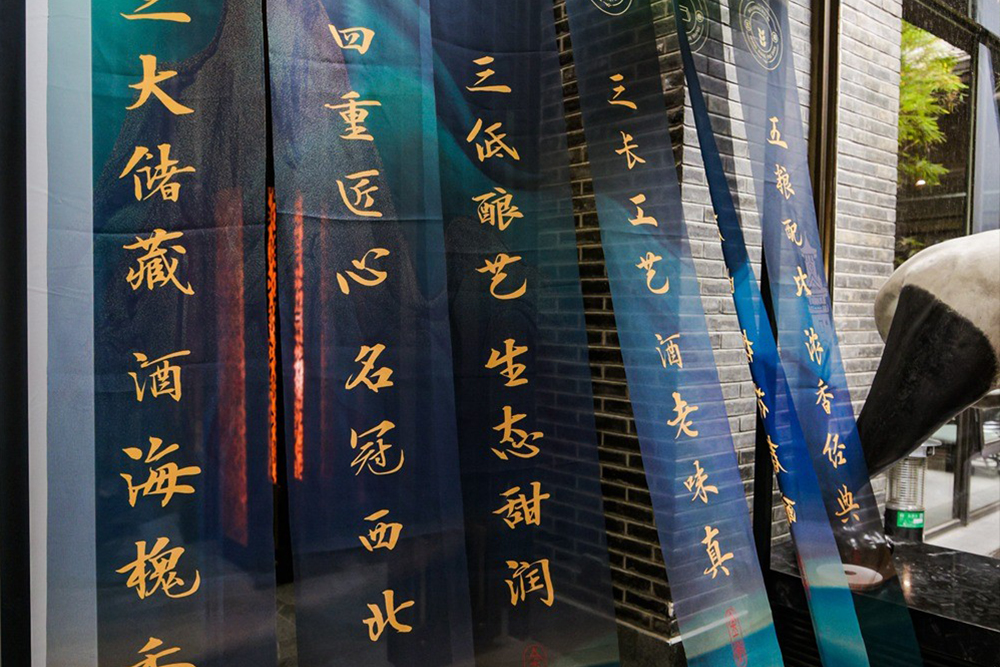 三大储藏酒海槐香
四重匠心名冠西北
三低酿艺生态甜润
三长工艺酒老味真
五粮配比浓香经典